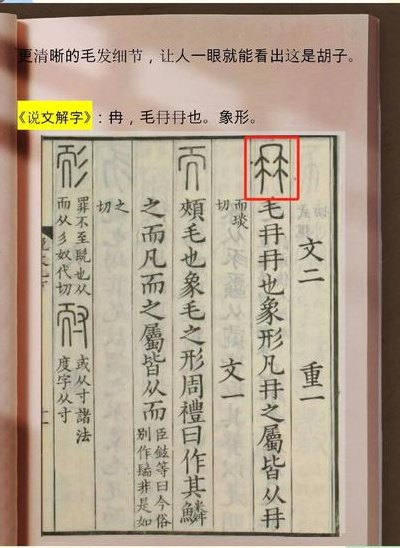 更清晰的毛发细节，让人一眼就能看出这是胡子。
《说文解字》：冉，毛冄冄也。象形。
文二 重一
冄 毛冄冄也象形凡冄之屬皆从冄
而琰切 文一
而 頰毛也象毛之形周禮曰作其鱗
之而凡而之屬皆从而 臣鉉等曰今俗別作髵非是如
之切
耏 罪不至髡也从而从彡奴代切 耐 或从寸諸法度字从寸